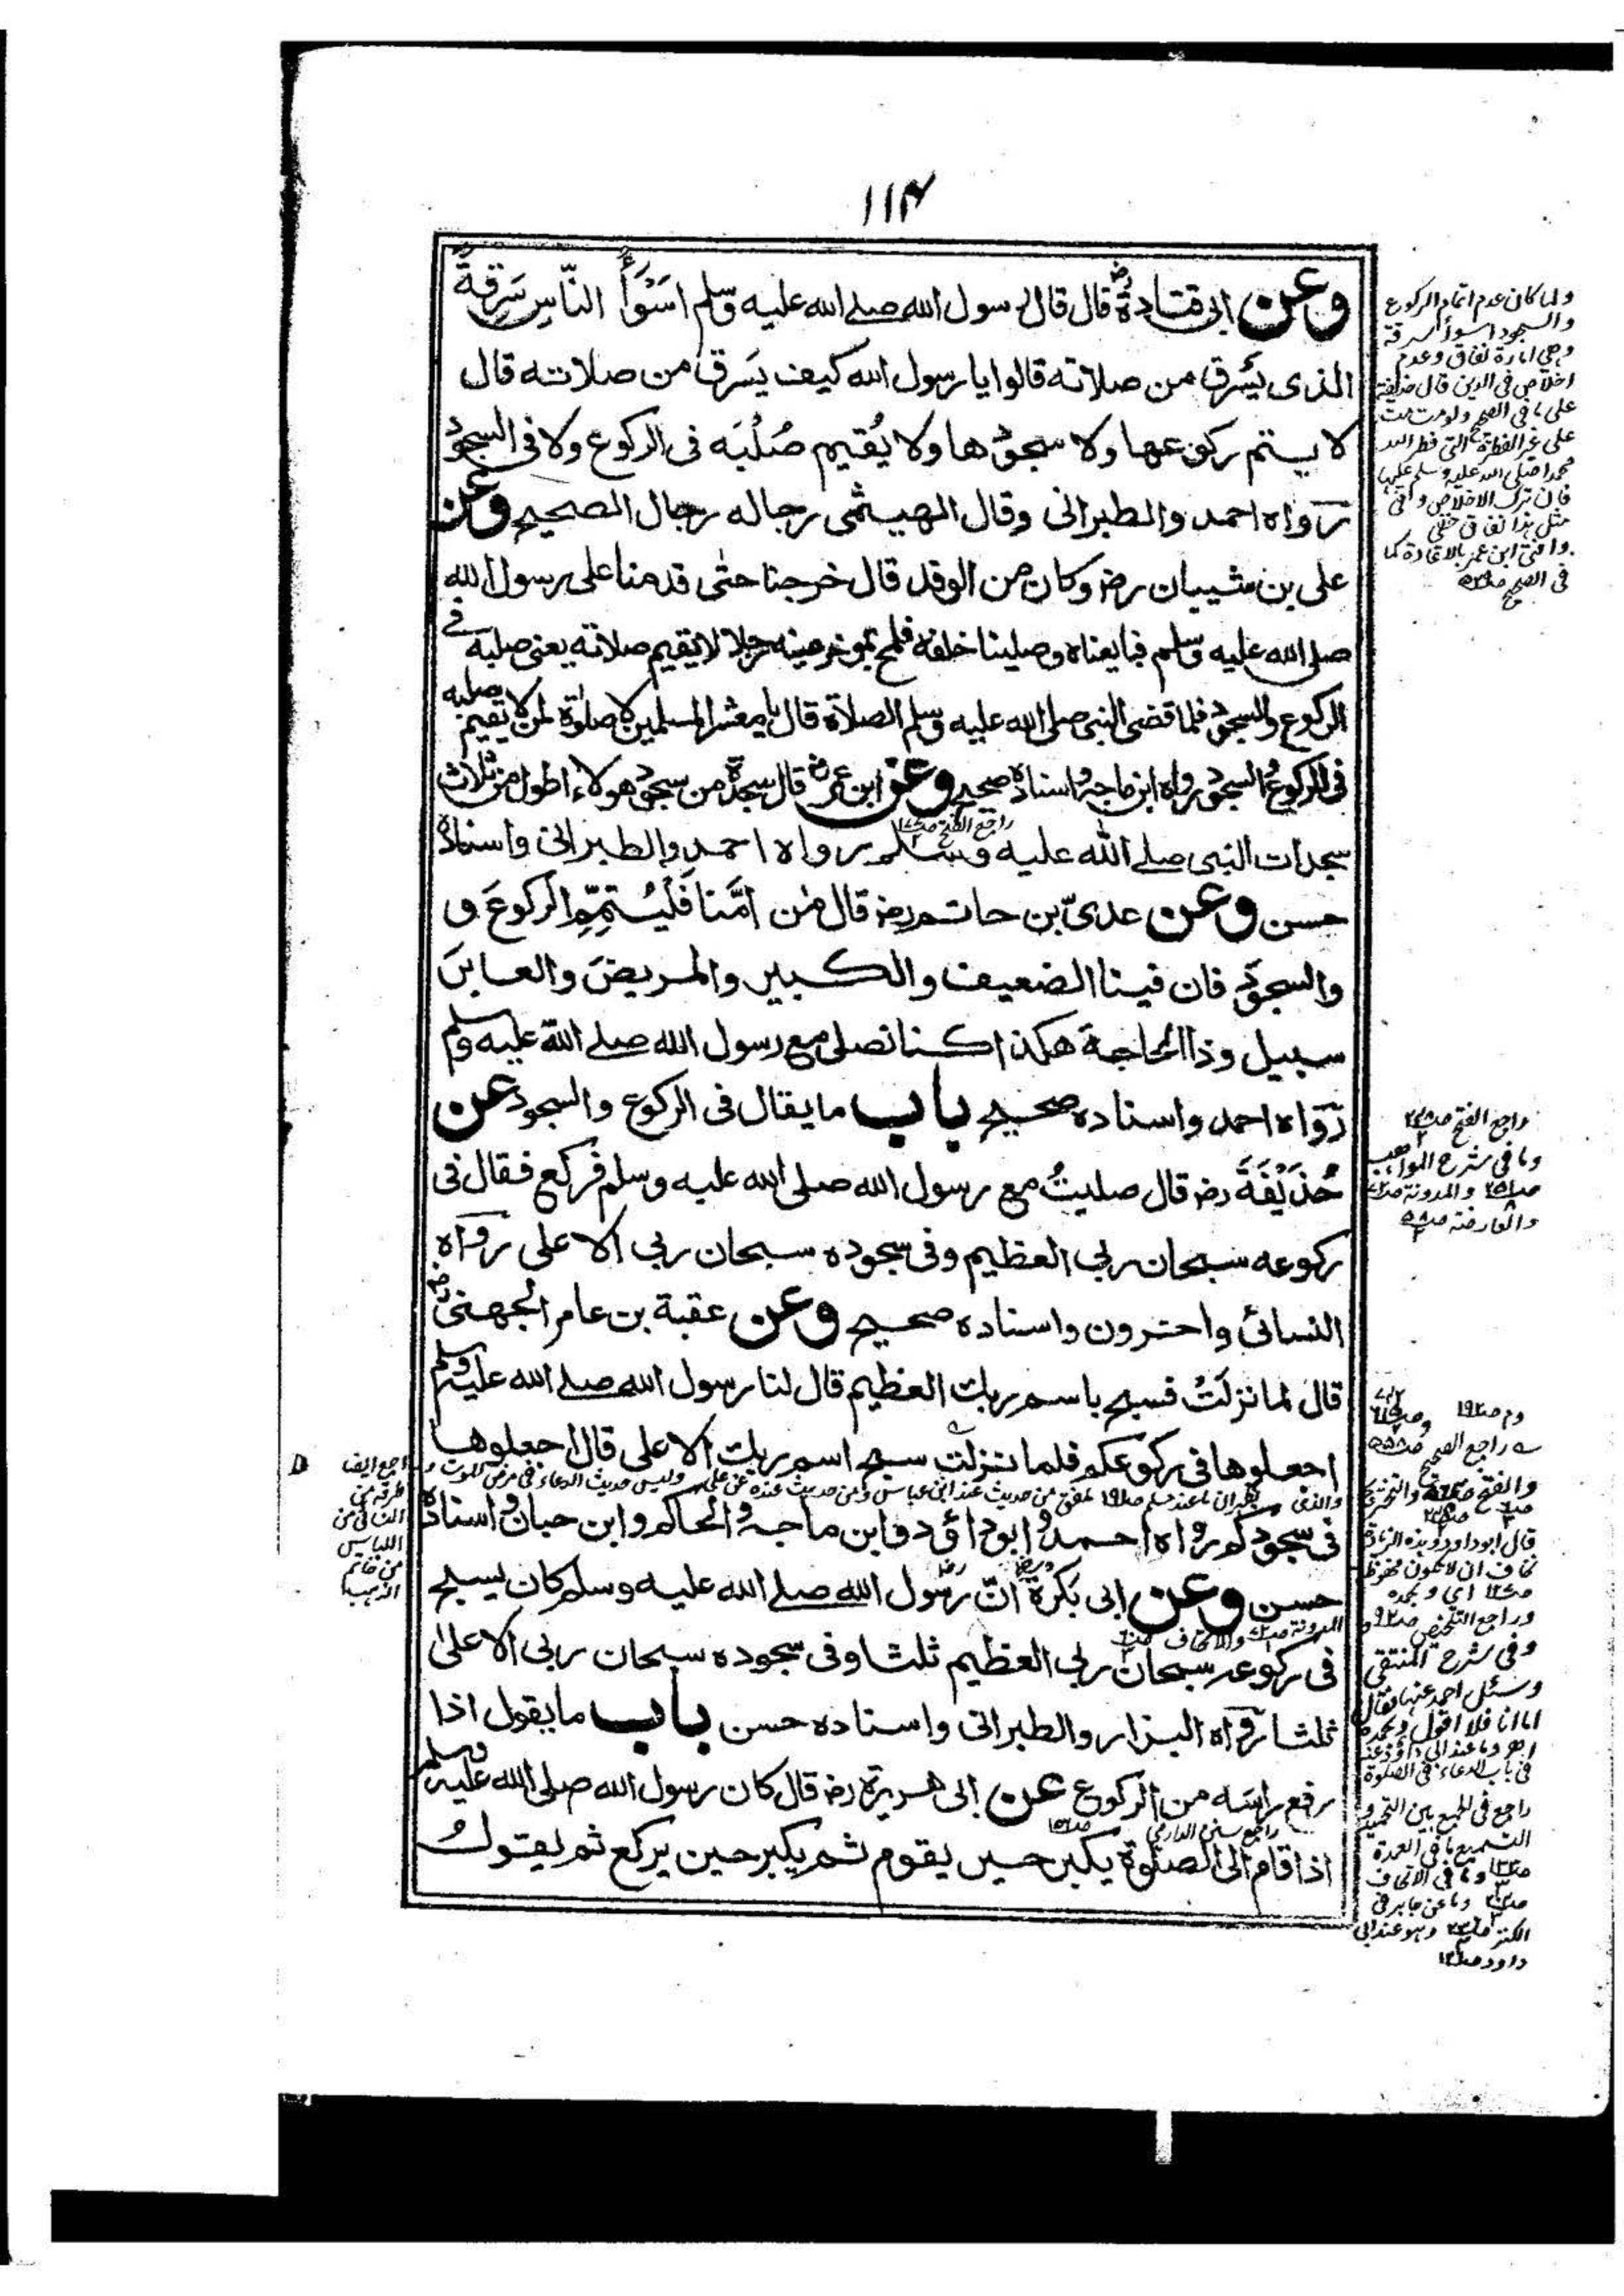 ١١٤
وعن ابى قتادةؓ قال قال رسول الله صلے الله عليه وسلم اَسْوَأُ النّاسِ سَرِقَةً
الذى يَسْرِق من صلاته قالوا يا رسول الله كيف يَسْرِق من صلاته قال
لا يتم ركوعها ولا سجودها ولا يُقيم صُلْبَه فى الركوع ولا فى السجود
رواه احمد والطبرانى وقال الهيثمى رجاله رجال الصحيح وعن
على بن شيبان رضـ وكان من الوفد قال خرجنا حتٰى قدمنا على رسول الله
صلى الله عليه وسلم فبايعناه وصلينا خلفه فلمح بمؤخر عينه رجلا لا يقيم صلاته يعنى صلبه فى
الركوع والسجود فلما قضى النبى صلى الله عليه وسلم الصلاة قال يا معشر المسلمين لا صلوٰة لمن لا يقيم صلبه
فى الركوع والسجود رواه ابن ماجة واسناده صحيح وعن ابن عمرؓ قال سجدة من سجود هولاء اطول من ثلاث
سجدات النبى صلے الله عليه وسلم رواه احمد والطبرانى واسناده
حسن وعن عدىّ بن حاتم رضـ قال مَن اَمَّنا فَلْيُتِمِّ الركوعَ و
والسجودَ فان فينا الضعيف والكبير والمريضَ والعابرَ
سبيل وذا الحاجة هكذا كنا نصلى مع رسول الله صلے الله عليه وسلم
رواه احمد واسناده صحيح باب ما يقال فى الركوع والسجود عن
حُذَيْفَةَ رضـ قال صليتُ مع رسول الله صلى الله عليه وسلم فركع فقال فى
ركوعه سبحان ربى العظيم وفى سجوده سبحان ربى الاعلى رواه
النسائى واخرون واسناده صحيح وعن عقبة بن عامر الجهنىؓ
قال لما نزلَتْ فسبح باسم ربك العظيم قال لنا رسول الله صلے الله عليه وسلم
اجعلوها فى ركوعكم فلما نزلت سبح اسم ربك الاعلى قال اجعلوها
فى سجودكم رواه احمد وابو داؤد وابن ماجة والحاكم وابن حبان واسناده
حسن وعن ابى بَكْرَةَ رضـ انّ رسول الله صلے الله عليه وسلم كان يسبح
فى ركوعه سبحان ربى العظيم ثلثا وفى سجوده سبحان ربى الاعلىٰ
ثلثا رواه البزار والطبرانى واسناده حسن باب ما يقول اذا
رفع راسَه من الركوع عن ابى هريرة رضـ قال كان رسول الله صلى الله عليه وسلم
اذا قام الى الصلوٰة يكبر حين يقوم ثم يكبر حين يركع ثم يقول
ولما كان عدم اتمام الركوع
والسجود اسوأ السرقة
وهى امارة نفاق وعدم
اخلاص فى الدين قال حذيفة
على ما فى الصحيح ولو مت مت
على غير الفطرة التى فطر الله
محمدا صلى الله عليه وسلم عليها
فان ترك الاخلاص
مثل هذا نفاق خفى
فى الصحيح
راجع الفتح
وما فى شرح المواهب
والمدونة
والعارضة
راجع الصحيح
قال ابو داود وهذه الزيادة
نخاف ان لا تكون محفوظة
اى وبحمده
وراجع التلخيص
وفى شرح المنتقى
وسئل احمد عنها فقال
اما انا فلا اقول وبحمده
فى باب الدعاء فى الصلوة
راجع فى الجمع بين التحميد و
التسميع ما فى العمدة
وما فى الاتحاف
وما عن جابر فى
الكنز وهو عند ابى
داود
راجع سنن الدارمى
من خاتم
الذهب